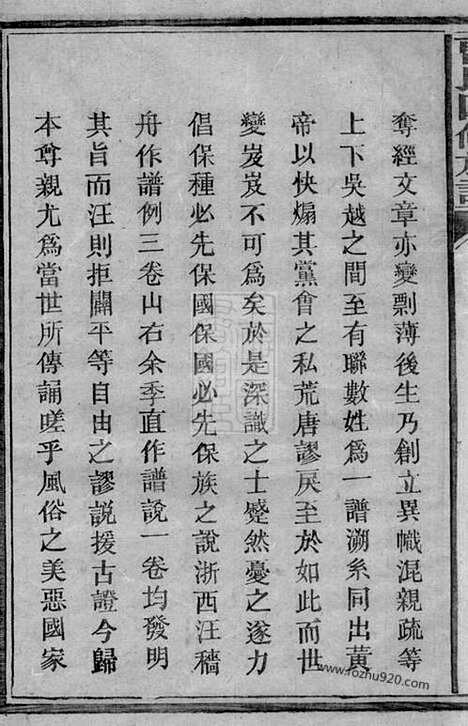 奪經文章亦變剽薄後生乃創立異幟混親疏等
上下吳越之間至有聯數姓爲一譜溯系同出黃
帝以快煽其黨會之私荒唐謬戾至於如此而世
變岌岌不可爲矣於是深識之士蹙然憂之遂力
倡保種必先保國保國必先保族之說浙西汪穡
舟作譜例三卷山右余季直作譜說一卷均發明
其旨而汪則拒闢平等自由之謬說援古證今歸
本尊親尤爲當世所傳誦嗟乎風俗之美惡國家
www.rozhu920.com